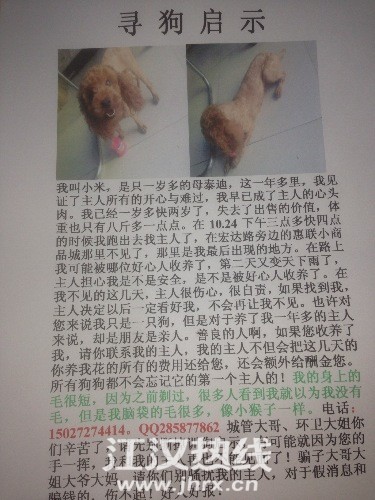 寻狗启示
我叫小米。是只一岁多的母泰迪，这一年多里，我见
证了主人所有的开心与难过，我早已成了主人的心头
肉。我已经一岁多快两岁了，失去了出售的价值，体
重也只有八斤多一点点。在 10.24 下午三点多快四点
的时候我跑出去找主人了，在宏达路旁边的惠联小商
品城那里不见了，那里是我最后出现的地方。在路上
我可能被哪位好心人收养了，第二天又变天下雨了，
主人担心我是不是安全，是不是被好心人收养了。在
我不见的这几天，主人很伤心，很自责，如果找到我，
主人决定以后一定看好我，不会再让我不见。也许对
您来说我只是一只狗，但是对于养了我一年多的主人
来说，却是朋友是亲人。善良的人啊，如果您收养了
我，请你联系我的主人，我的主人不但会把这几天的
你养我花的所有的费用还给您，还会额外给酬金您。
所有狗狗都不会忘记它的第一个主人的！我的身上的
毛很短，因为之前剃过，很多人看到我就以为我没有
毛，但是我脑袋的毛很多，像小猴子一样。电话：
15027274414. QQ285877862 城管大哥、环卫大姐你
们辛苦了，请
可能就因为您的
手一挥，
骗子大哥大
姐大爷大妈，请你们别骚扰我的主人，对于假消息和
骗钱的，伤不起！好人好报！
江汉热线
www.jhrx.cn